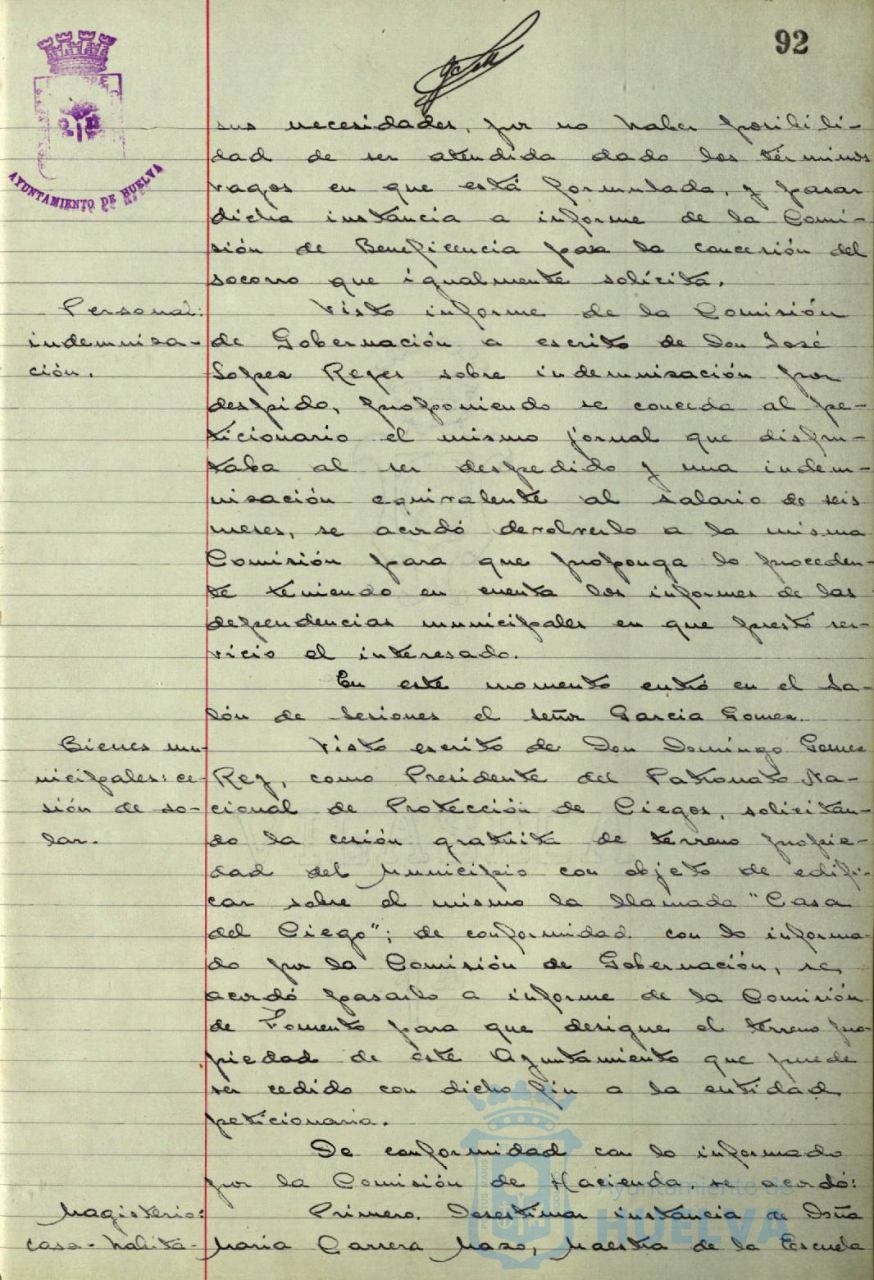 92
AYUNTAMIENTO DE HUELVA
sus necesidades, por no haber posibili-
dad de ser atendida dado los términos
vagos en que está formulada, y pasar
dicha instancia a informe de la Comi-
sión de Beneficencia para la concesión del
socorro que igualmente solicita.
Personal:
indemniza-
ción.
Visto informe de la Comisión
de Gobernación a escrito de Don José
Lopez Reyes sobre indemnización por
despido, proponiendo se conceda al pe-
ticionario el mismo jornal que disfru-
taba al ser despedido y una indem-
nización equivalente al salario de seis
meses, se acordó devolverlo a la misma
Comisión para que proponga lo proceden-
te teniendo en cuenta los informes de las
dependencias municipales en que prestó ser-
vicio el interesado.
En este momento entró en el Sa-
lón de Sesiones el señor Garcia Gomez.
Bienes mu-
nicipales: ce-
sión de so-
lar.
Visto escrito de Don Domingo Gomez
Rey, como Presidente del Patronato Na-
cional de Protección de Ciegos, solicitan-
do la cesión gratuita de terreno propie-
dad del Municipio con objeto de edifi-
car sobre el mismo la llamada "Casa
del Ciego"; de conformidad con lo informa-
do por la Comisión de Gobernación, se
acordó pasarlo a informe de la Comisión
de Fomento para que designe el terreno pro-
piedad de éste Ayuntamiento que puede
ser cedido con dicho fin a la entidad
peticionaria.
De conformidad con lo informado
por la Comisión de Hacienda, se acordó:
Magisterio:
casa-habita-
Primero. Desestimar instancia de Doña
Maria Carrera Mazo, Maestra de la Escuela
Ayuntamiento de
HUELVA